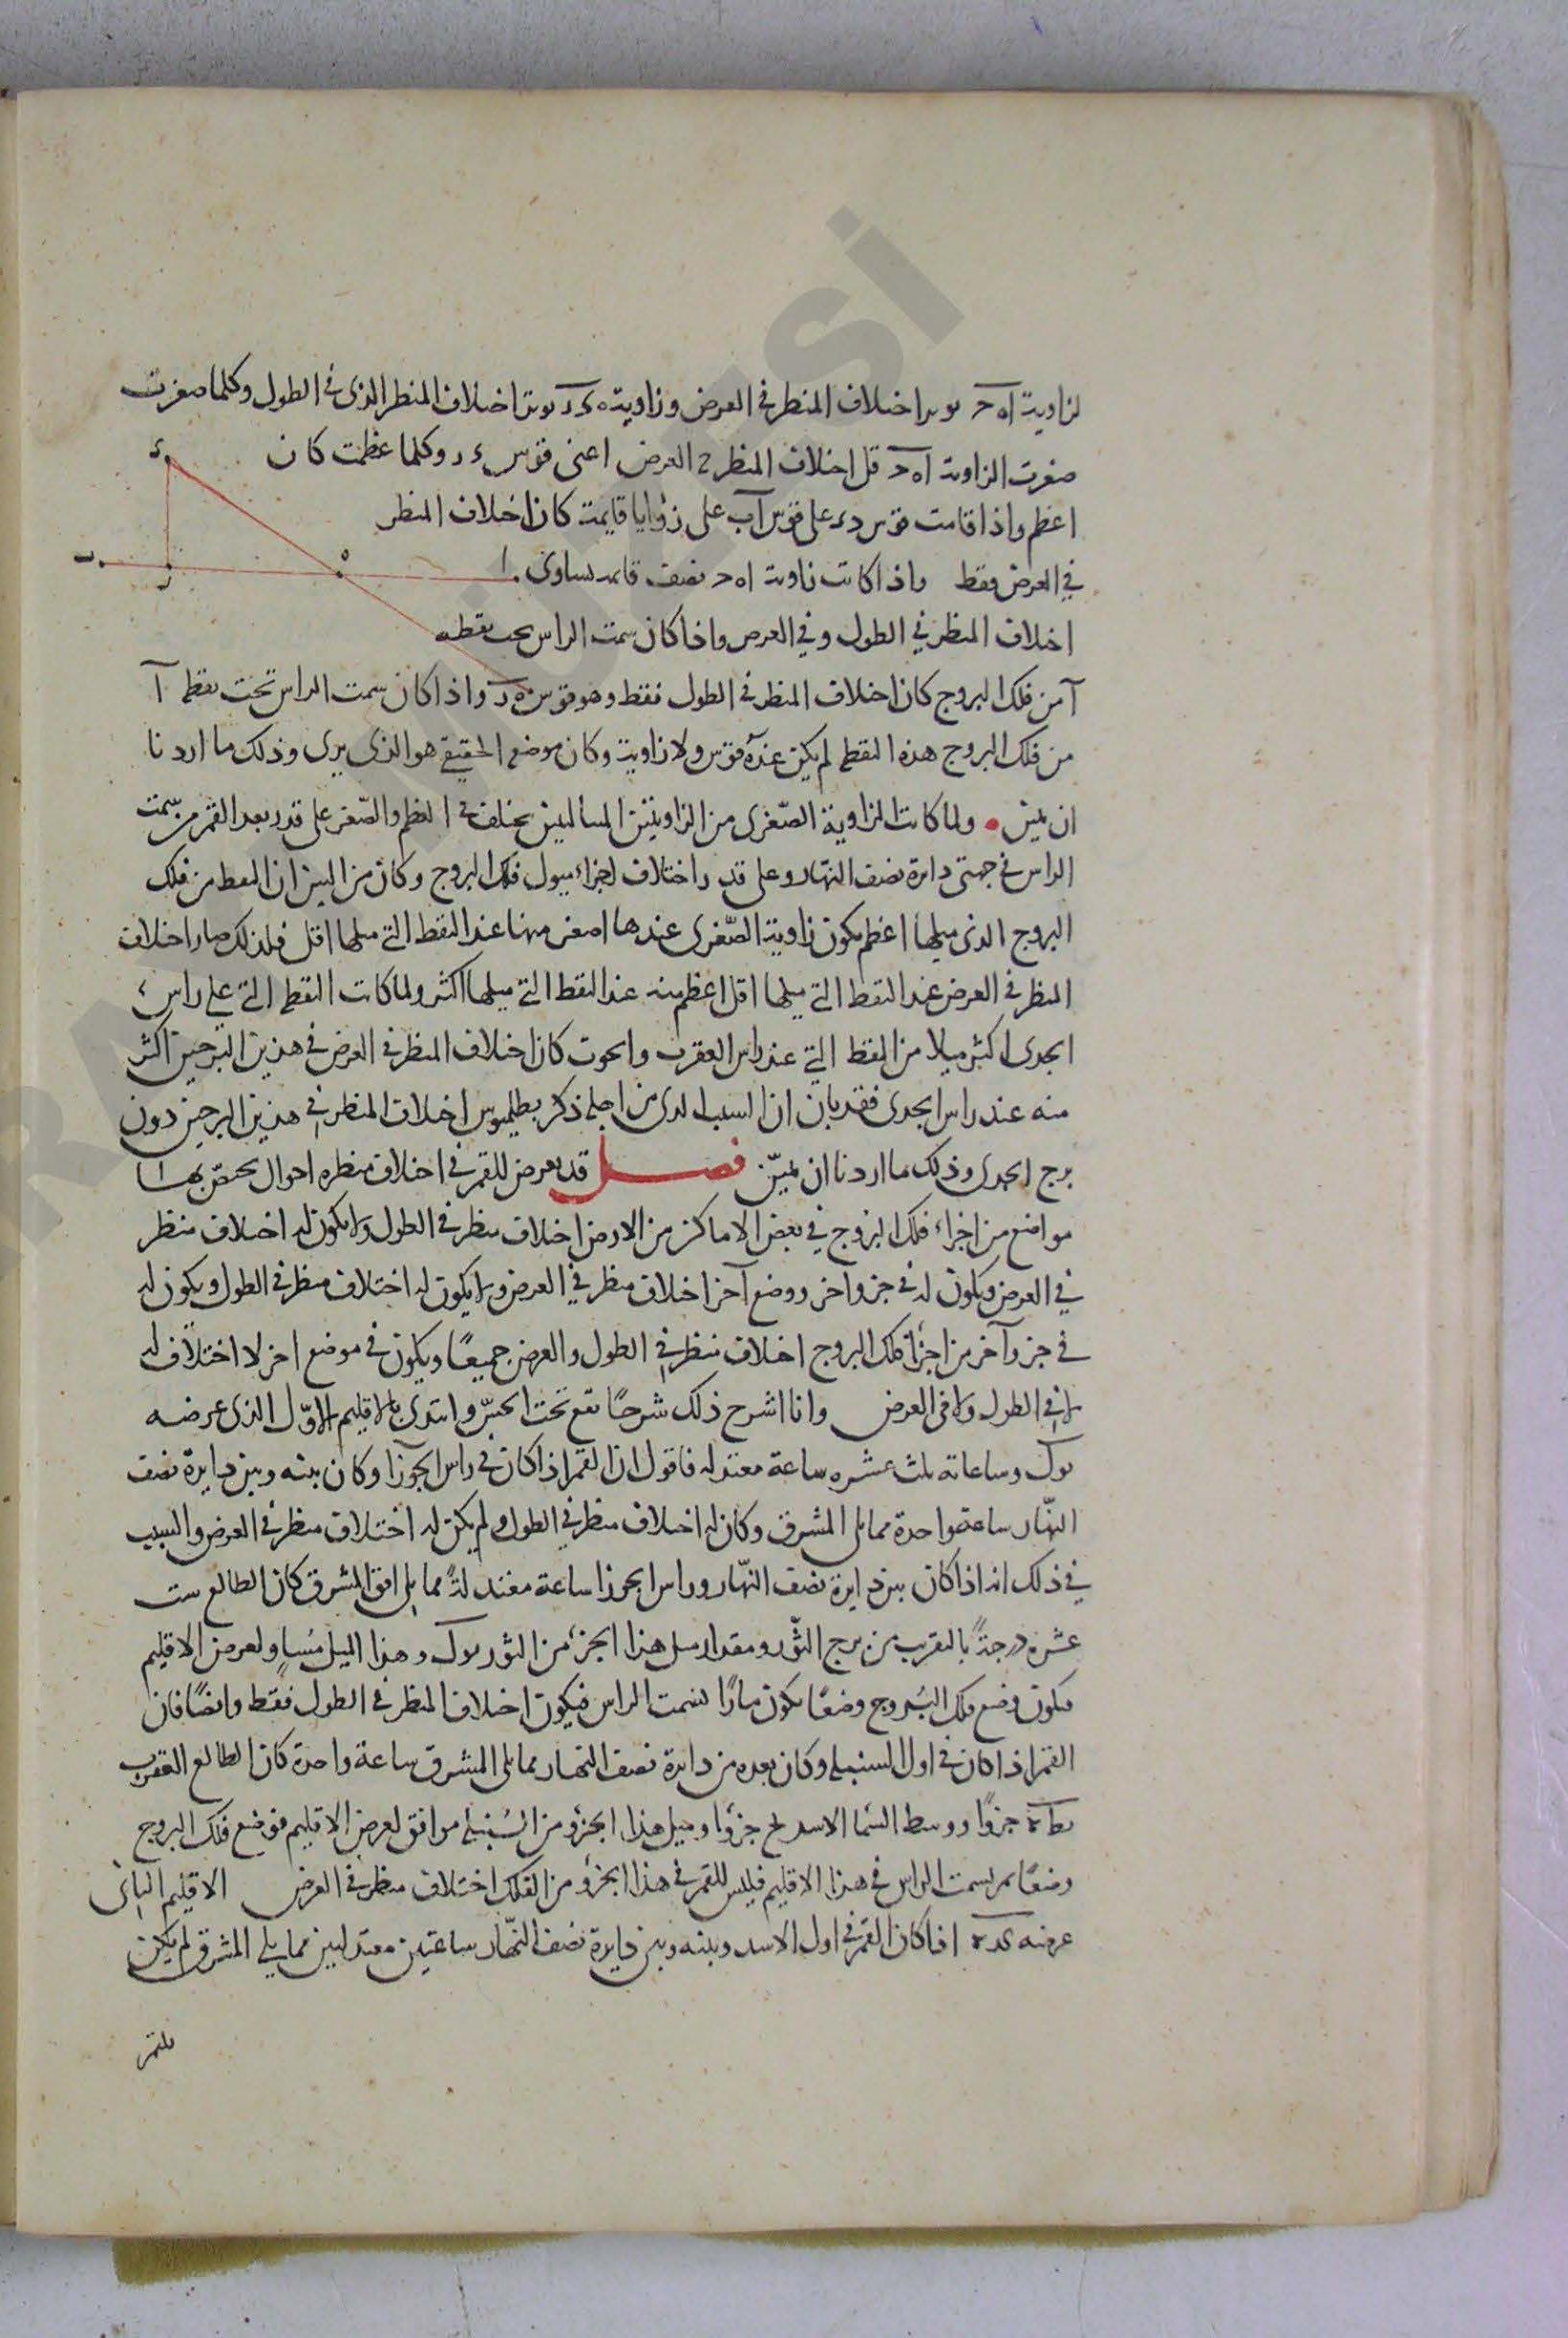 لزاوية اهح يوتر اختلاف المنظر في العرض وزاوية هىر يوتر اختلاف المنظر الذي في الطول وكلما صغرت
صغرت الزاوية اهح قل اختلاف المنظر في العرض اعنى قوس ءر وكلما عظمت كان
اعظم واذا قامت قوس دء على قوس آب على زوايا قايمة كان اختلاف المنظر
في العرض فقط واذا كانت زاوية اهح نصف قايمة يساوى
اختلاف المنظر في الطول وفي العرض واذا كان سمت الراس تحت نقطه
آ من فلك البروج كان اختلاف المنظر في الطول فقط وهو قوس هر واذا كان سمت الراس تحت نقطه آ
من فلك البروج هذه النقطه لم يكن عنده قوس ولا زاوية وكان موضعه الحقيقي هو الذي يرى وذلك ما اردنا
ان نبين ولما كانت الزاوية الصّغرى من الزاويتين يختلف في العظم والصّغر على قدر بعد القمر من سمت
الراس في جهتى دايرة نصف النهار وعلى قدر اختلاف اجزاء ميول فلك البروج وكان من البين ان النقط من فلك
البروج الذي ميلها اعظم يكون زاوية الصّغرى عندها اصغر منها عند النقط التي ميلها اقل فلذلك صار اختلاف
المنظر في العرض عند النقط التي ميلها اقل اعظم منه عند النقط التي ميلها اكثر ولما كانت النقطه التي على راس
الجدى اكثر ميلا من النقطه التي عند راس العقرب والحوت كان اختلاف المنظر في العرض في هذين البرجين اكثر
منه عند راس الجدى فقد بان ان السبب الذي من اجله ذكر بطلميوس اختلاف المنظر في هذين البرجين دون
برج الجدى وذلك ما اردنا ان نبيّن فصل قد يعرض للقمر في اختلاف منظره احوال يختصّ بها
مواضع من اجزاء فلك البروج في بعض الاماكن من الارض اختلاف منظر في الطول ولا يكون له اختلاف منظر
في العرض ويكون له في جزو اخر ووضع آخر اختلاف منظر في العرض ولا يكون له اختلاف منظر في الطول ويكون له
في جزو آخر من اجزا فلك البروج اختلاف منظر في الطول والعرض جميعًا ويكون في موضع اخر لا اختلاف له
لا في الطول ولا في العرض وانا اشرح ذلك شرحًا يقع تحت الحسّ وابتدى بالاقليم الاوّل الذي عرضه
يوك وساعاته ثلث عشره ساعة معتدله فاقول ان القمر اذا كان في راس الجوزا وكان بينه وبين دايرة نصف
النهّار ساعة واحدة مما يلى المشرق وكان له اختلاف منظر في الطول ولم يكن له اختلاف منظر في العرض والسبب
في ذلك انه اذا كان بين دايرة نصف النهّار وراس الجوزا ساعة معتدلةً مما يلى افق المشرق كان الطالع ست
عشره درجةً بالتقريب من برج الثّور ومقدار ميل هذا الجزء من الثور يوك وهذا الميل مُساوٍ لعرض الاقليم
فيكون وضع فلك البُروج وضعًا يكون مارًا لسمت الراس فيكون اختلاف المنظر في الطول فقط وايضًا فان
القمر اذا كان في اول السنبله وكان بعده من دايرة نصف النهار مما يلى المشرق ساعة واحدة كان الطالع العقرب
جزوًا ووسط السّما الاسد يح جزوا وميل هذا الجزو من السُنبله موافق لعرض الاقليم فوضع فلك البروج
وضعًا يمر بسمت الراس في هذا الاقليم فليس للقمر في هذا الجزو من الفلك اختلاف منظر في العرض الاقليم الثانى
عرضه كدہ اذا كان القمر في اول الاسد وبينه وبين دايرة نصف النهّار ساعتين معتدلتين مما يلى المشرق لم يكن
للقمر